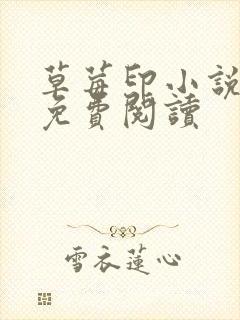 草莓印小說
免費閱讀
雪衣蓮心